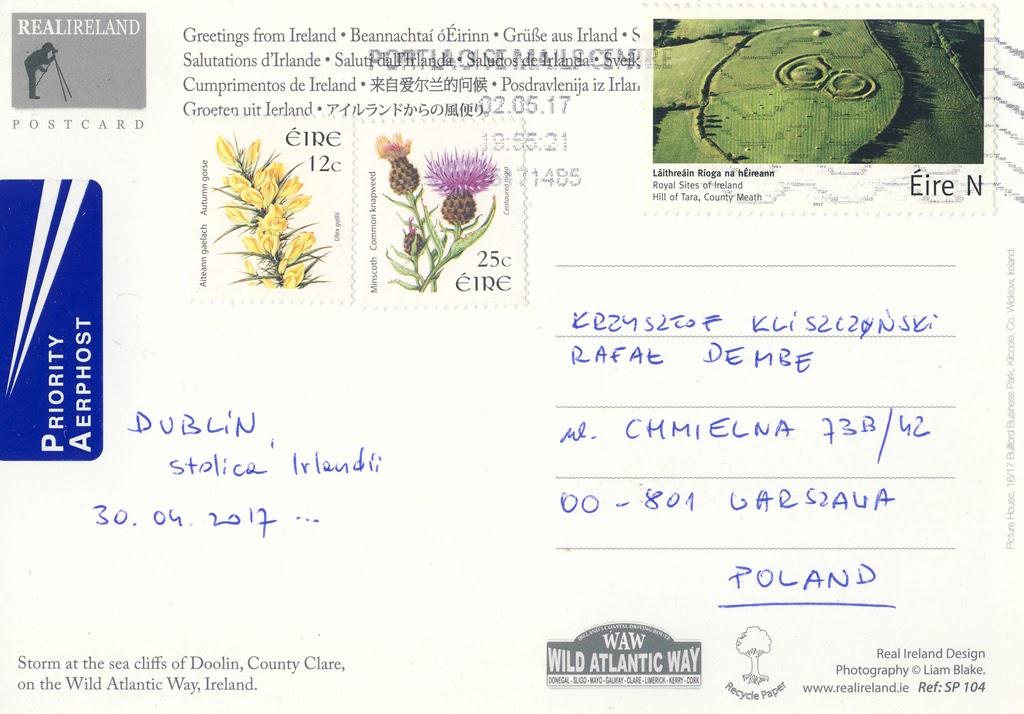 REALIRELAND
POSTCARD
Greetings from Ireland • Beannachtaí óÉirinn • Grüße aus Irland • S
Salutations d'Irlande • Saluti dall'Irlanda • Saludos de Irlanda • Sveik
Cumprimentos de Ireland • 来自爱尔兰的问候 • Posdravlenija iz Irlan
Groeten uit Ierland • アイルランドからの風便り
PORTLAOISE MAILS CENTRE
02.05.17
71485
ÉIRE
12c
Aiteann gaelach Autumn gorse
Ulex gallii
Minscoth Common knapweed
Centaurea nigra
25c
ÉIRE
Láithreáin Ríoga na hÉireann
Royal Sites of Ireland
Hill of Tara, County Meath
2017
Éire N
PRIORITY
AERPHOST
DUBLIN,
stolica Irlandii
30. 04. 2017 ...
KRZYSZTOF KLISZCZYŃSKI
RAFAŁ DEMBE
ul. CHMIELNA 73B/42
00-801 WARSZAWA
POLAND
Storm at the sea cliffs of Doolin, County Clare,
on the Wild Atlantic Way, Ireland.
IRELAND'S COASTAL DRIVING ROUTE
WAW
WILD ATLANTIC WAY
DONEGAL - SLIGO - MAYO - GALWAY - CLARE - LIMERICK - KERRY - CORK
Recycle Paper
Real Ireland Design
Photography © Liam Blake.
www.realireland.ie Ref: SP 104
Picture House, 16/17 Bullford Business Park, Kilcoole, Co. Wicklow, Ireland.